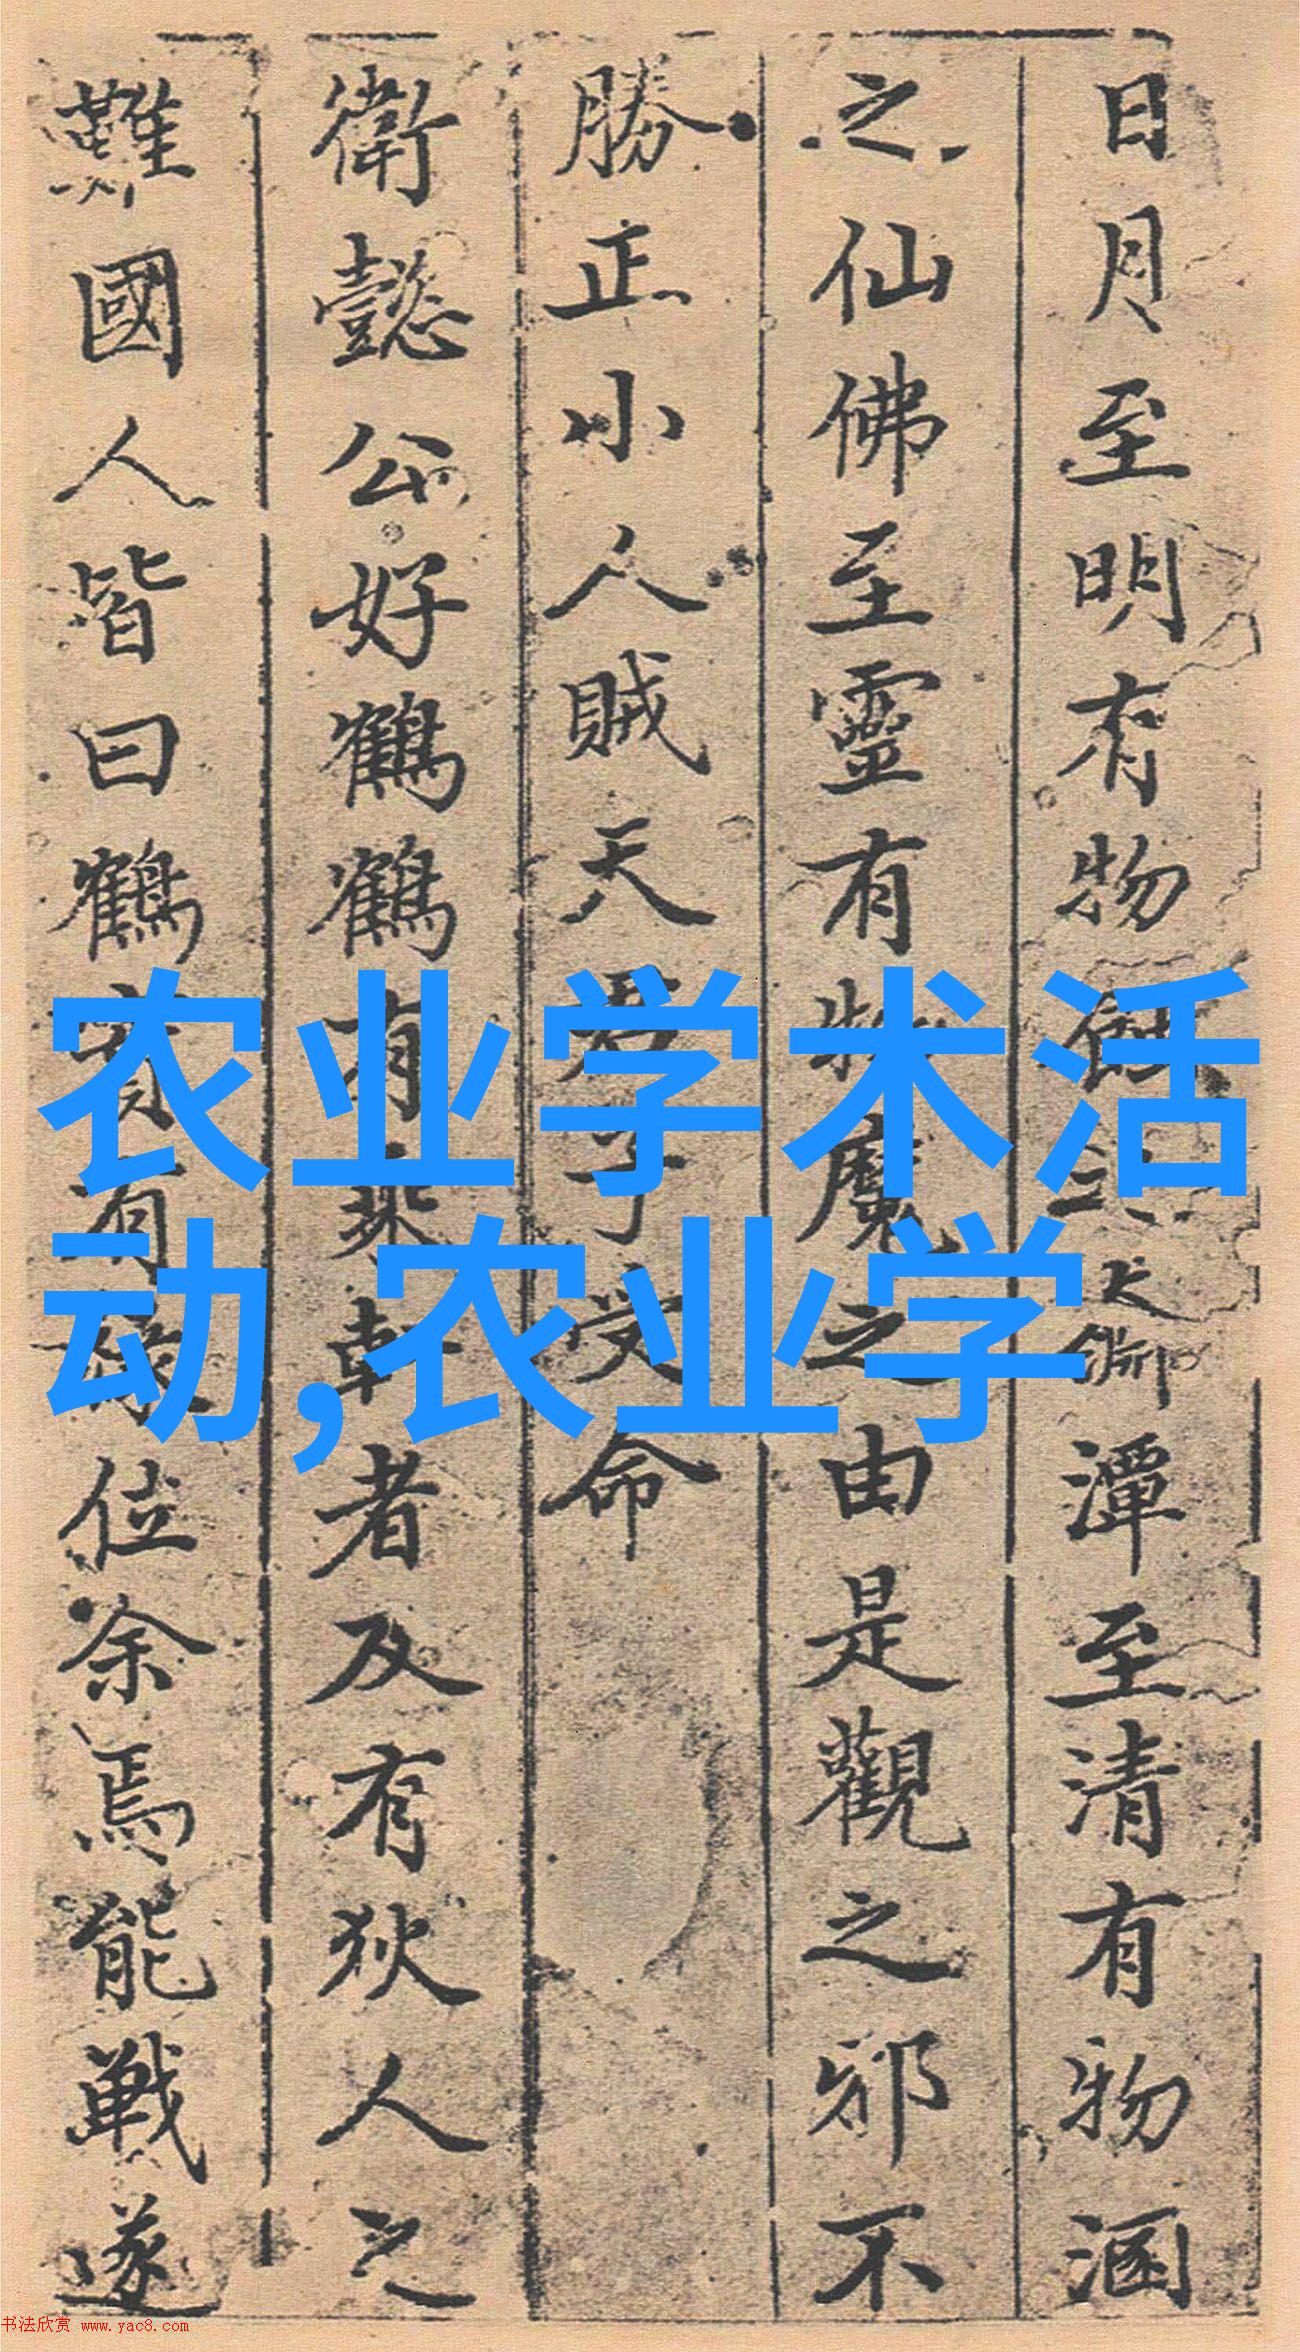 日月至明有物蝕之大哉潭至清有物涵
之仙佛至靈有物魔之由是觀之邪不
勝正小人賊天君子受命
衛懿公好鶴鶴有乘軒者及有狄人之
難國人皆曰鶴實有祿位余焉能戰遂
农业学术活
动,农业学
书法欣赏 www.yac8.com